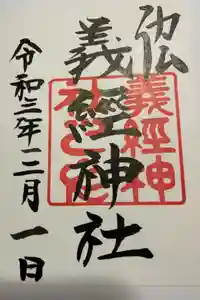 義經神社
令和三年三月一日
義經神
社之印